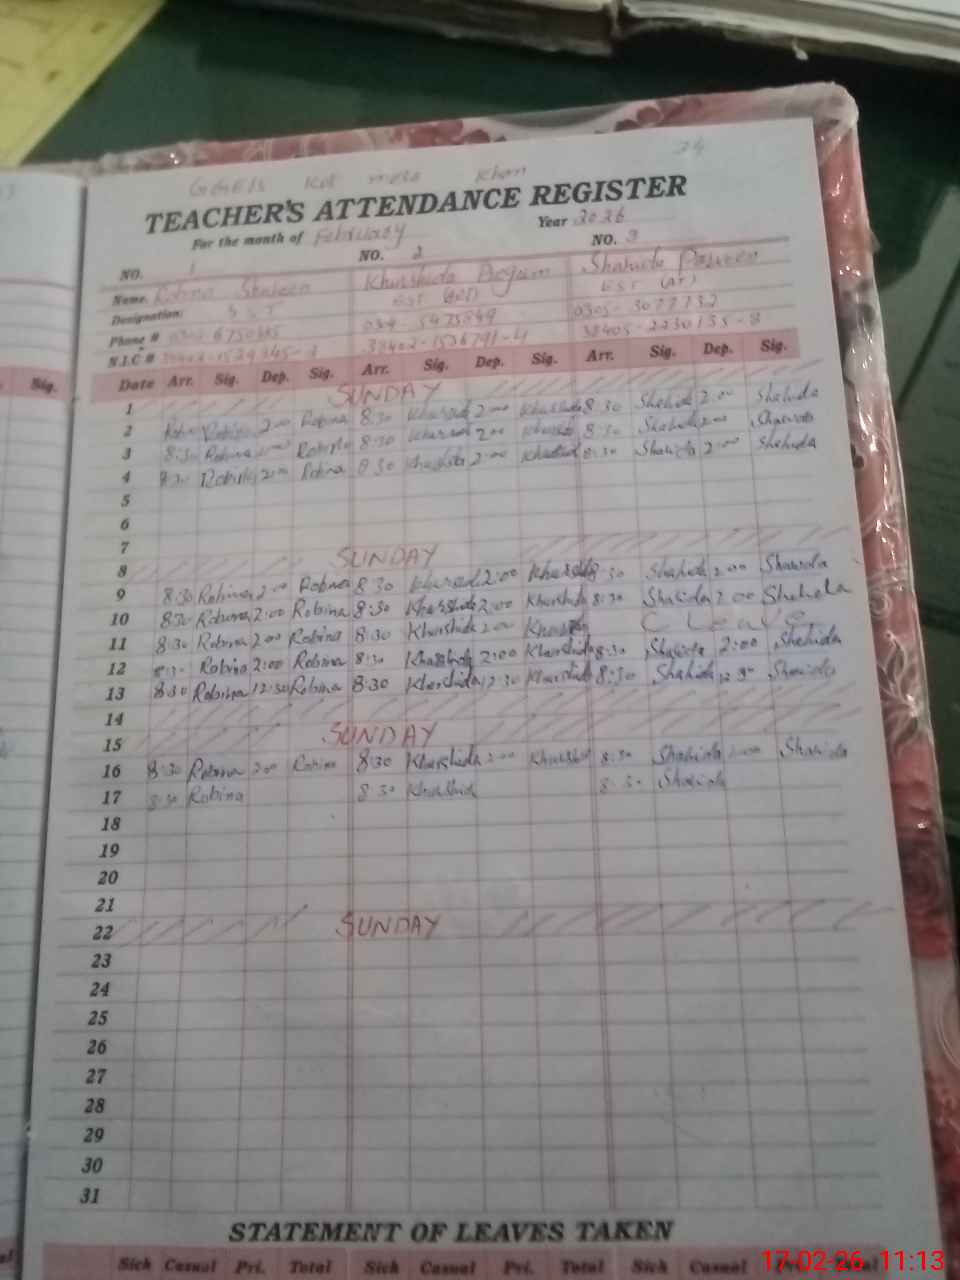 24
GGEIS Kot mera Khan
TEACHER'S ATTENDANCE REGISTER
For the month of February Year 2026
NO. 1 NO. 2 NO. 3
Name. Robina Shaheen Khurshida Begum Shahida Parveen
Designation: SST EST EST (AT)
Phone # 0305-3077732
N.I.C #
Date Arr. Sig. Dep. Sig. Arr. Sig. Dep. Sig. Arr. Sig. Dep. Sig.
1 SUNDAY
2 Robina 2:00 Robina 8:30 Khursid 2:00 Khurshida 8:30 Shahida 2:00 Shahida
3 8:30 Robina 2:00 Robina 8:30 Khursid 2:00 8:30 Shahida 2:00 Shahida
4 8:30 Robina 2:00 Robina 8:30 Khurshida 2:00 8:30 Shahida 2:00 Shahida
5
6
7
8 SUNDAY
9 8:30 Robina 2:00 Robina 8:30 Khursid 2:00 Khurshid 8:30 Shahida 2:00 Shahida
10 8:30 Robina 2:00 Robina 8:30 Khurshida 2:00 Khurshida 8:30 Shahida 2:00 Shahida
11 8:30 Robina 2:00 Robina 8:30 Khurshida 2:00 C Leave
12 8:30 Robina 2:00 Robina 8:30 Khurshida 2:00 Khurshida 8:30 Shahida 2:00 Shahida
13 8:30 Robina 12:30 Robina 8:30 Khurshida 12:30 Khurshida 8:30 Shahida 12:30 Shahida
14
15 SUNDAY
16 8:30 Robina 2:00 Robina 8:30 Khurshida 2:00 Khurshid 8:30 Shahida 2:00 Shahida
17 8:30 Robina 8:30 Khurshid 8:30 Shahida
18
19
20
21
22 SUNDAY
23
24
25
26
27
28
29
30
31
STATEMENT OF LEAVES TAKEN
Sich Casual Pri. Total Sich Casual Pri. Total Sich Casual Pri. Total
17-02-26 11:13
Sig.